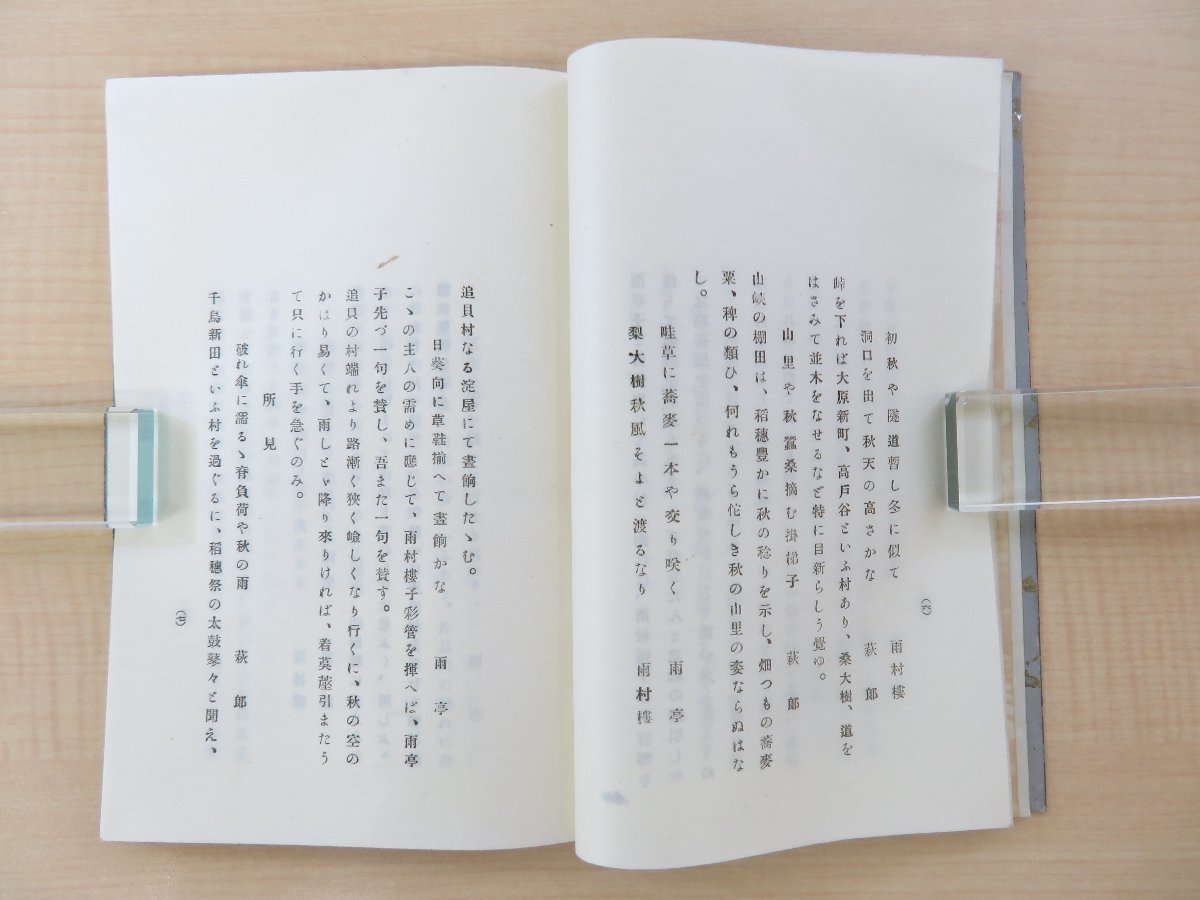 初秋や隧道暫し冬に似て　雨村樓
洞口を出て秋天の高さかな　萩郎
峠を下れば大原新町、高戸谷といふ村あり、桑大樹、道を
はさみて並木をなせるなど特に目新らしう覺ゆ。
山里や秋蠶桑摘む掛梯子　萩郎
山峽の棚田は、稻穗豊かに秋の稔りを示し、畑つもの蕎麥
粟、稗の類ひ、何れもうら佗しき秋の山里の姿ならぬはな
し。
畦草に蕎麥一本や交り咲く　雨亭
梨大樹秋風そよと渡るなり　雨村樓
(六)
追貝村なる淀屋にて晝餉したゝむ。
日葵向に草鞋揃へて晝餉かな　雨亭
こゝの主人の需めに應じて、雨村樓子彩管を揮へば、雨亭
子先づ一句を賛し、吾また一句を賛す。
追貝の村端れより路漸く狹く嶮しくなり行くに、秋の空の
かはり易くて、雨しとゞ降り來りければ、着茣蓙引またう
て只に行く手を急ぐのみ。
所見
破れ傘に濡るゝ脊負荷や秋の雨　萩郎
千鳥新田といふ村を過ぐるに、稻穗祭の太鼓鼕々と聞え、
(七)